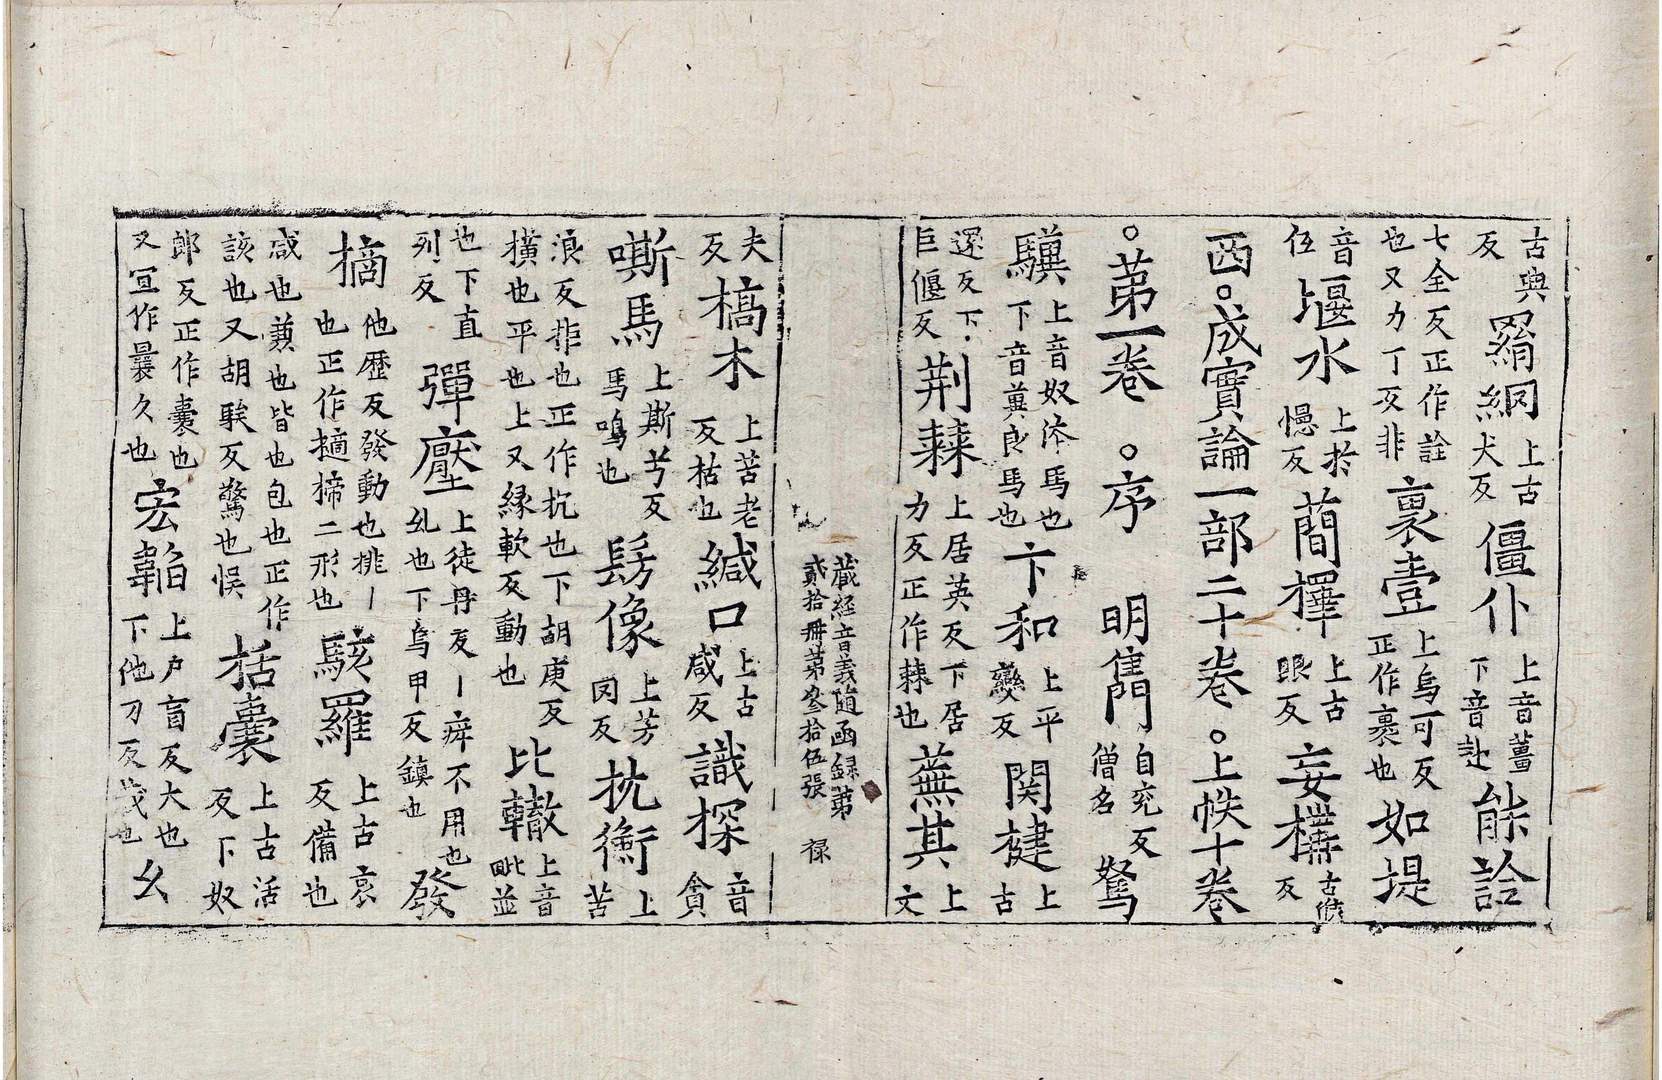 古典反羂䋞上古犬反僵仆上音薑下音赴能詮
七全反正作詮也又力丁反非裹壹上烏可反正作裏也如堤
音伍堰水上於幰反蕳擇上古眼反妄構古候反
西。成實論一部二十卷。上帙十卷
。第一卷。序 明雋門自兖反僧名駑
驥上音奴㳄馬也下音兾良馬也卞和上平變反関楗上古
還反下巨偃反荆棘上居英反下居力反正作棘也蕪其上文
藏經音義随函録第
貳拾冊第叄拾伍張 禄
夫反槁木上苦老反枯也緘口上古咸反識探音貪
嘶馬上斯兮反馬鳴也髣像上芳罔反抗衡上苦
浪反拒也正作抗也下胡庚反橫也平也上又緣軟反動也比轍上音毗並
也下直列反彈壓上徒丹反丨瘁不用也乣也下烏甲反鎮也發
摘他歷反發動也排丨也正作擿揥二形也駭羅上古哀反備也
咸也兼也皆也包也正作該也又胡騃反驚也悮括囊上古活反下奴
郎反正作囊也又宜作曩久也宏韜上户盲反大也下他刀反藏也幺